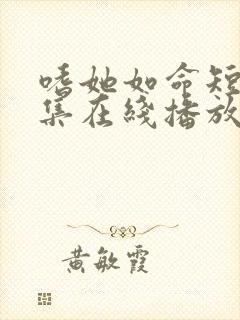 嗜她如命短
集在綫播放
黄敏霞